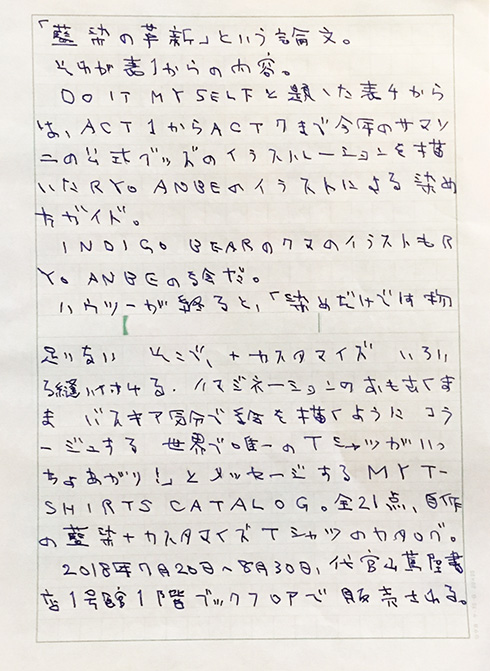 「藍染の革新」という論文。
それが表1からの内容。
DO IT MYSELFと題した表4から
は、ACT1からACT7まで今年のサマソ
ニの公式グッズのイラストレーションを描
いたRYO ANBEのイラストによる染め
方ガイド。
INDIGO BEARのクマのイラストもR
YO ANBEの絵だ。
ハウツーが終ると、「染めだけでは物
足りない そこで、+カスタマイズ いろい
ろ縫い付ける。イマジネーションのおもむくま
ま バスキア気分で絵を描くように コラ
ージュする 世界で唯一のTシャツがいっ
ちょあがり!」とメッセージするMY T-
SHIRTS CATALOG。全21点、自作
の藍染+カスタマイズTシャツのカタログ。
2018年7月20日~8月30日、代官山蔦屋書
店1号館1階ブックフロアで販売される。